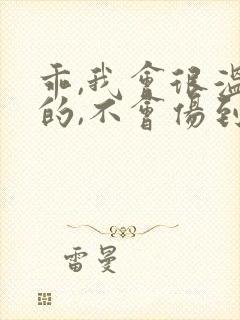 乖,我會很溫
的,不會傷到
雷曼